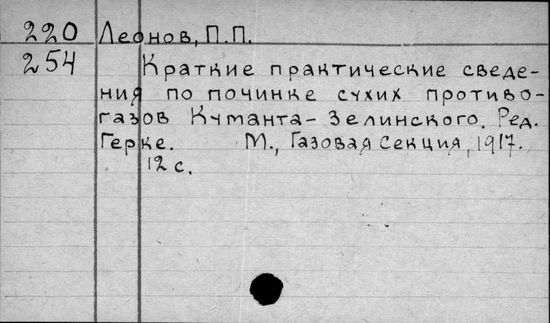 220 Леонов, П.П.
254 Краткие практические сведе-
ния по починке сухих противо-
газов Куманта-Зелинского. Ред.
Герке. М., Газовая Секция, 1917.
12 с.